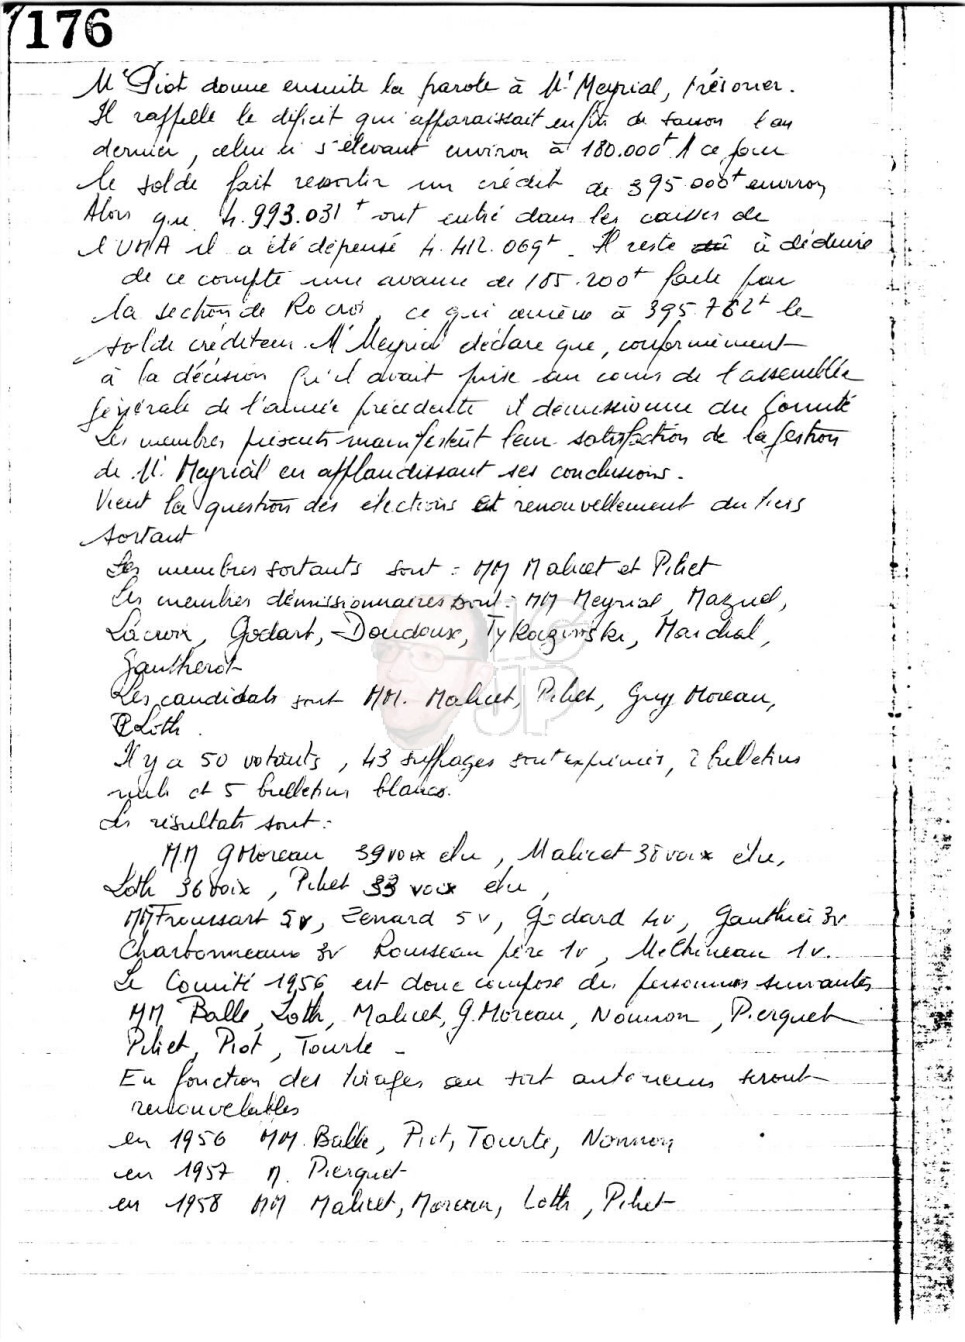 176
Mr Piot donne ensuite la parole à Mr Meyrial, trésorier.
Il rappelle le déficit qui apparaissait en fin de saison l'an
dernier, celui ci s'élevant environ à 180.000f A ce jour
le solde fait ressortir un crédit de 395.000f environ,
Alors que 4.993.031f ont entré dans les caisses de
l'UMA il a été dépensé 4.412.069f. Il reste à déduire
de ce compte une avance de 185.200f faite par
la section de Rocroi, ce qui amène à 395.762f le
solde créditeur. Mr Meyrial déclare que, conformément
à la décision qu'il avait prise au cours de l'assemblée
générale de l'année précédente il démissionne du Comité
Les membres présents manifestent leur satisfaction de la gestion
de Mr. Meyrial en applaudissant ses conclusions.
Vient la question des élections et renouvellement du tiers
sortant
Les membres sortants sont : MM Malicet et Pihet
Les membres démissionnaires sont : MM Meyrial, Mazuel,
Lacroix, Godart, Doudoux, Tykozinski, Marchal,
Gautherot
Les candidats sont MM. Malicet, Pihet, Guy Moreau,
Loth.
Il y a 50 votants, 43 suffrages sont exprimés, 2 bulletins
nuls et 5 bulletins blancs.
Les résultats sont :
MM G Moreau 39 voix élu, Malicet 38 voix élu,
Loth 36 voix, Pihet 33 voix élu,
MM Froussart 5v, Zenard 5v, Godard 4v, Gauthier 3v
Charbonneaux 3v Rousseau père 1v, Mechineau 1v.
Le Comité 1956 est donc composé des personnes suivantes
MM Balle, Loth, Malicet, G. Moreau, Nonnon, Pierquet
Pihet, Piot, Tourte -
En fonction des tirages au sort antérieurs seront
renouvelables
en 1956 MM. Balle, Piot, Tourte, Nonnon
en 1957 M. Pierquet
en 1958 MM Malicet, Moreau, Loth, Pihet
LG
JP